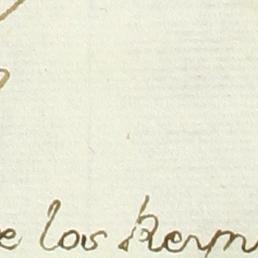 e los herm